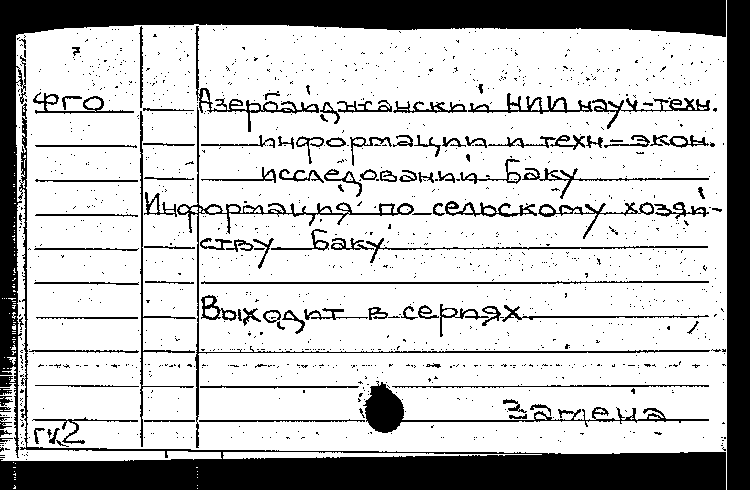 ФГО Азербайджанский НИИ науч-техн.
информации и техн.-экон.
исследований. Баку
Информация по сельскому хозяй-
ству. Баку
Выходит в сериях.
Замена
гк2